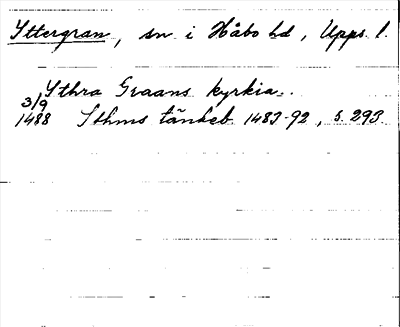 Yttergran, sn i Håbo hd, Upps. l.
Ythra Graans kyrkia.
3/9
1488 Sthms tänkeb. 1483-92, s. 293.